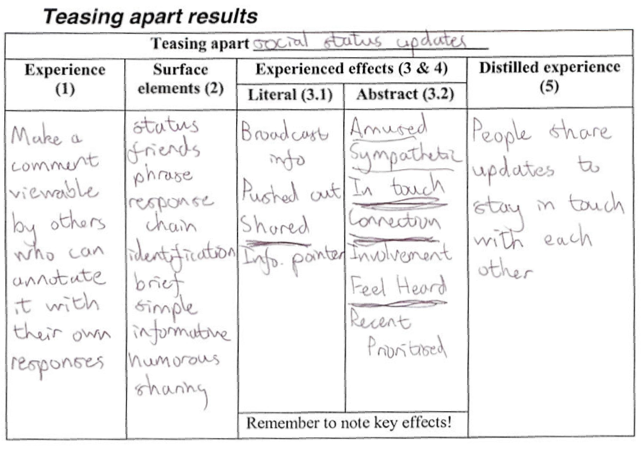 Teasing apart results
Teasing apart social status updates
Experience
(1)
Surface
elements (2)
Experienced effects (3 & 4)
Literal (3.1)
Abstract (3.2)
Distilled experience
(5)
Make a
comment
viewable
by others
who can
annotate
it with
their own
responses
status
friends
phrase
response
chain
identification
brief
simple
informative
humorous
sharing
Broadcast
info
Pushed out
Shared
Info. pointer
Amused
Sympathetic
In touch
Connection
Involvement
Feel Heard
Recent
Prioritised
Remember to note key effects!
People share
updates to
stay in touch
with each
other